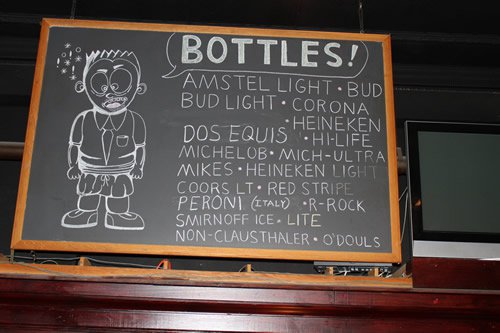 BOTTLES!
AMSTEL LIGHT • BUD
BUD LIGHT • CORONA
• HEINEKEN
DOS EQUIS • HI-LIFE
MICHELOB • MICH-ULTRA
MIKES • HEINEKEN LIGHT
COORS LT • RED STRIPE
PERONI (ITALY) • R-ROCK
SMIRNOFF ICE • LITE
NON-CLAUSTHALER • O'DOULS